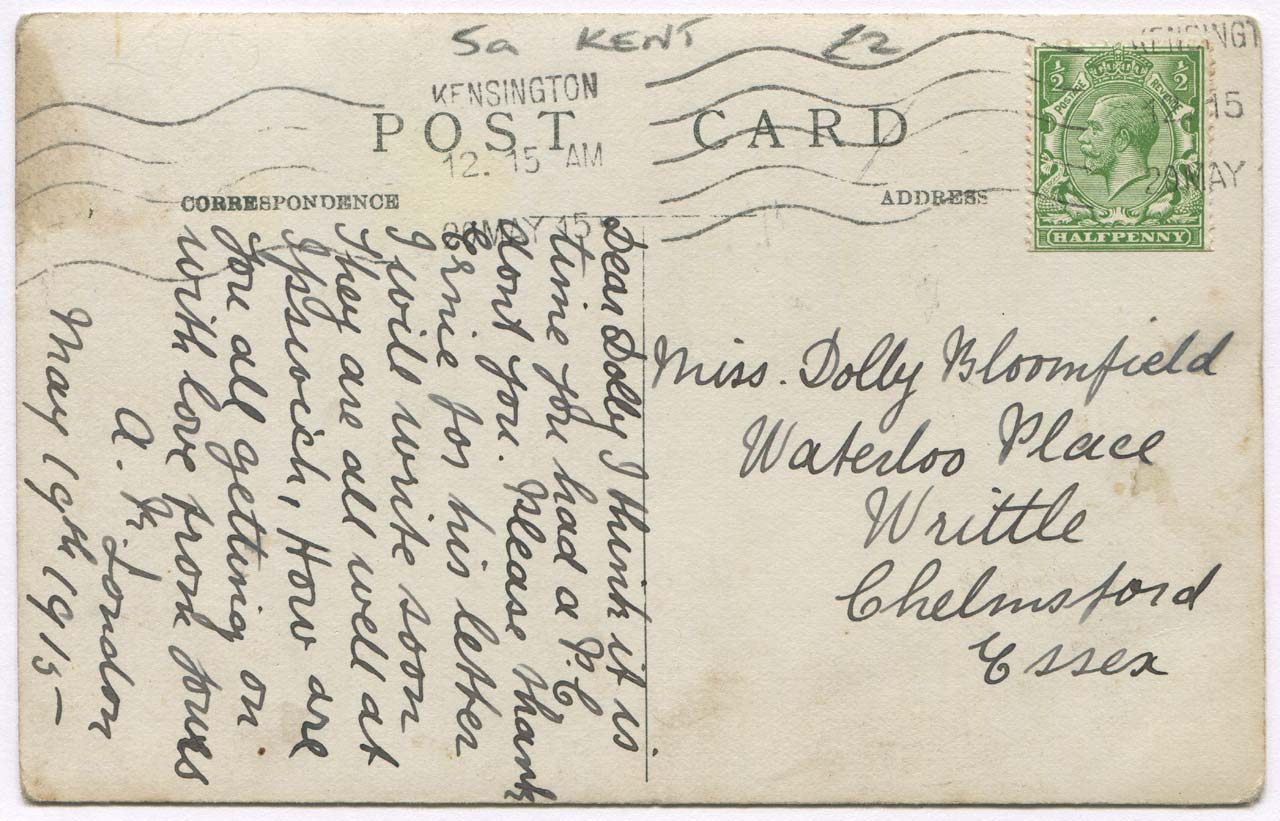 5a KENT £2
KENSINGTON
12. 15 AM
20 MAY 15
KENSINGT
12. 15
20 MAY
POST CARD
CORRESPONDENCE
ADDRESS
½ ½
POSTAGE REVENUE
HALFPENNY
Dear Dolly I think it is
time you had a P.C
dont you. Please thank
Ernie for his letter
I will write soon
They are all well at
Ipswich, How are
you all getting on
with love from yours
A.
London
May 19th 1915 –
Miss. Dolly Bloomfield
Waterloo Place
Writtle
Chelmsford
Essex